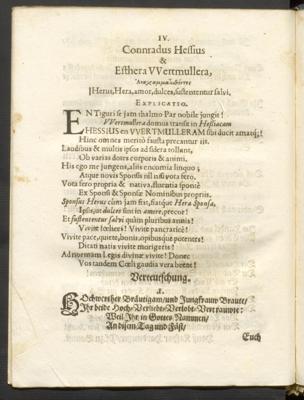 IV.
Connradus Hessius
&
Esthera VVertmullera,
Herus, Hera, amor, dulces, sustententur salvi,
EXPLICATIO.
EN Tiguri se jam thalmo Par nobile jungit!
VVertmullera domus transit in Hessiacam
HESSIUS en VVERTMULLERAM sibi ducit amatā;!
Hinc omnes meritò fausta precantur iis.
Laudibus & multis ipsos ad sidera tollant,
Ob varias dotes corporis & animi.
His ego me jungens, aliis encomia linquo;
Atque novis Sponsis nil nisi vota fero.
Vota fero propria & nativa, fluentia sponte
Ex Sponsi & Sponsæ Nominibus propriis.
Sponsus Herus cùm jam fiat, fiatque Hera Sponsa,
Ipsique dulces sint in amore, precor!
Et sustententur salvi quàm pluribus annis!
Vivite felices! Vivite pancraticè!
Vivite pace, quiete, bonis, opibusque potentes!
Divini natis vivite morigeris!
Ad normam Legis divinæ vivite! Donec
Vos tandem Cœli gaudia vera beent!
Verteutschung.
1.
Hochwerther Bräutigam/ und Jungfraune Braute/
Ihr beide Hoch-Verliebte/ Verlobt-Vertraute:
Weil Ihr in Gottes Nammen/
An disem Tag und Fäst/
Euch